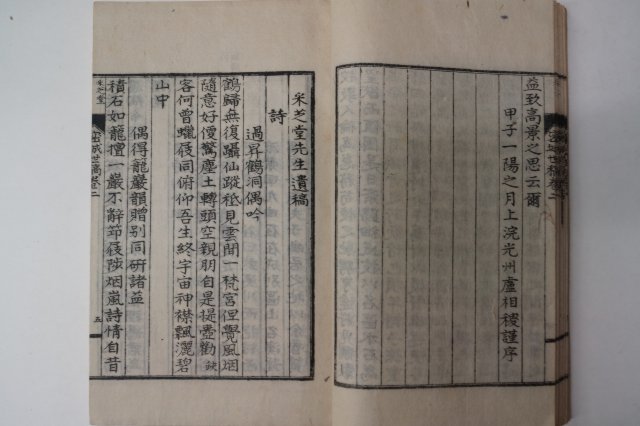 益致高景之思云爾
甲子一陽之月上浣光州盧相稷謹序
采芝堂先生遺稿
詩
過昇鶴洞偶吟
鶴歸無復躡仙蹤秪見雲間一梵宮但覺風烟
隨意好便驚塵土轉頭空親朋自是提壺勸缺
客何曾蠟屐同俯仰吾生終宇宙神襟飄灑碧
山中
偶得龍巖韻贈别同研諸益
積石如龍擅一巖不辭笻屐陟烟嵐詩情自昔
世稿卷二
五